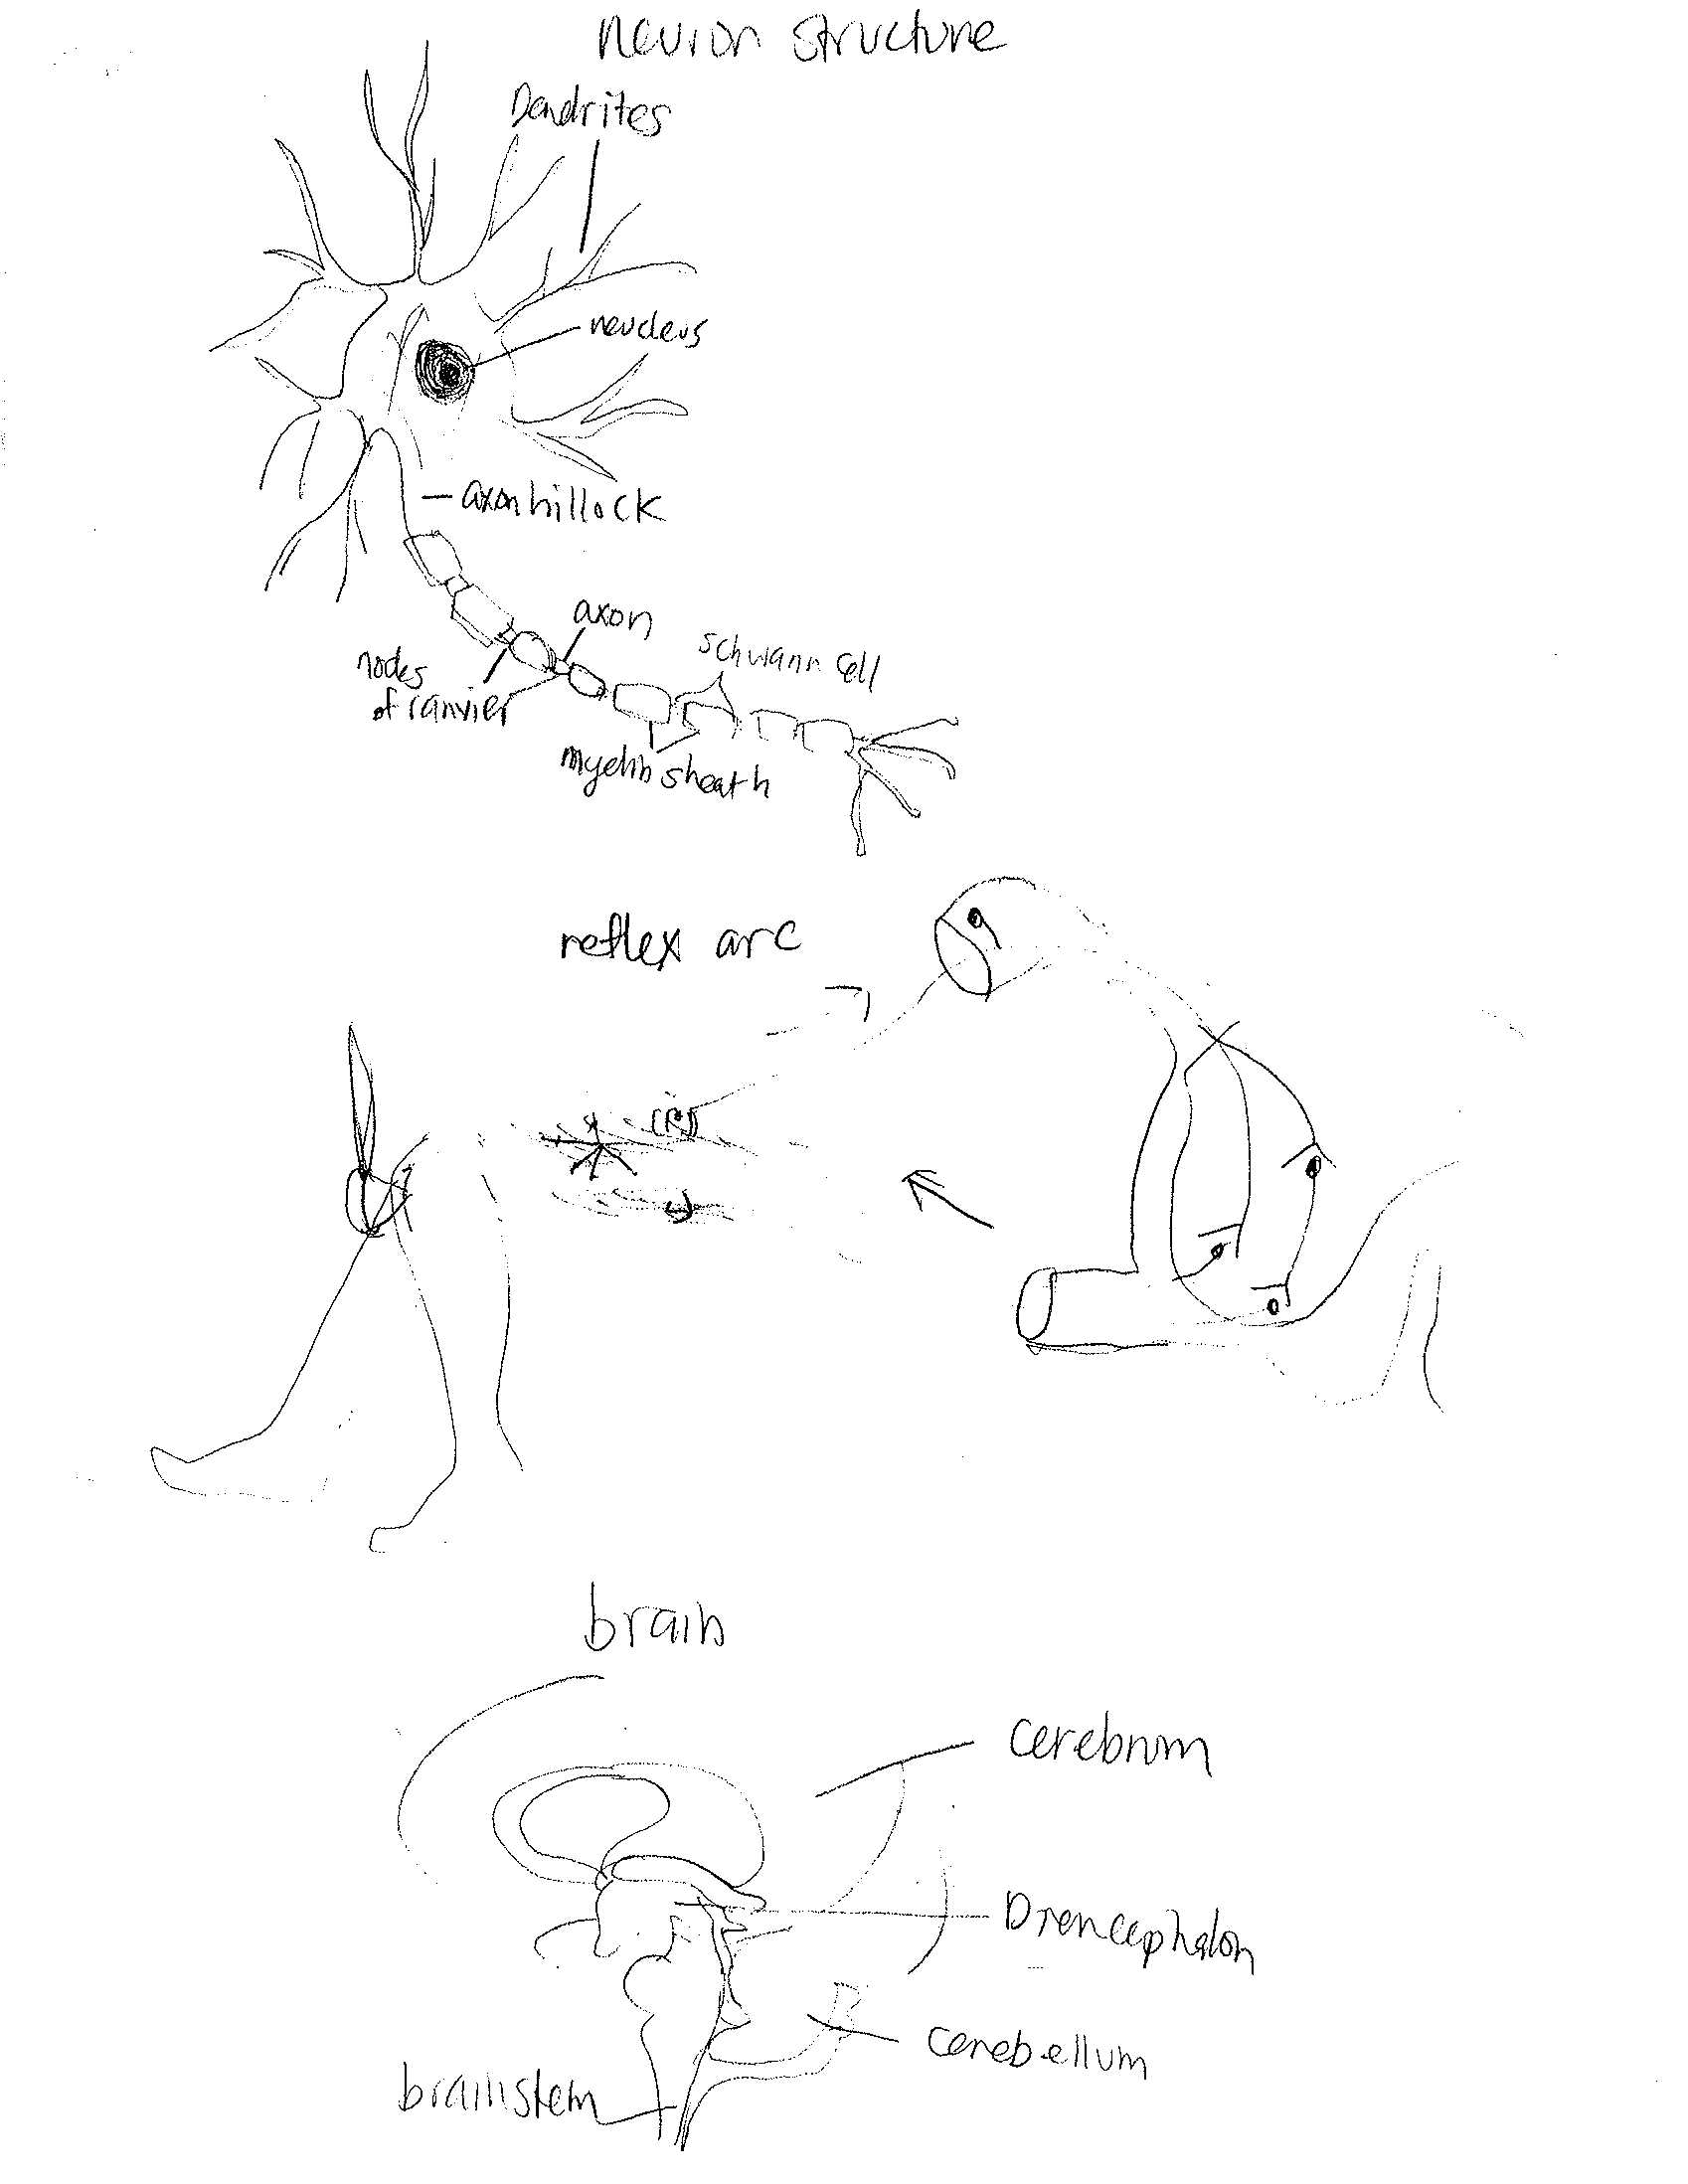 neuron structure
Dendrites
neucleus
axon hillock
axon
schwann cell
nodes
of ranvier
myelin sheath
reflex arc
brain
cerebrum
Diencephalon
cerebellum
brainstem